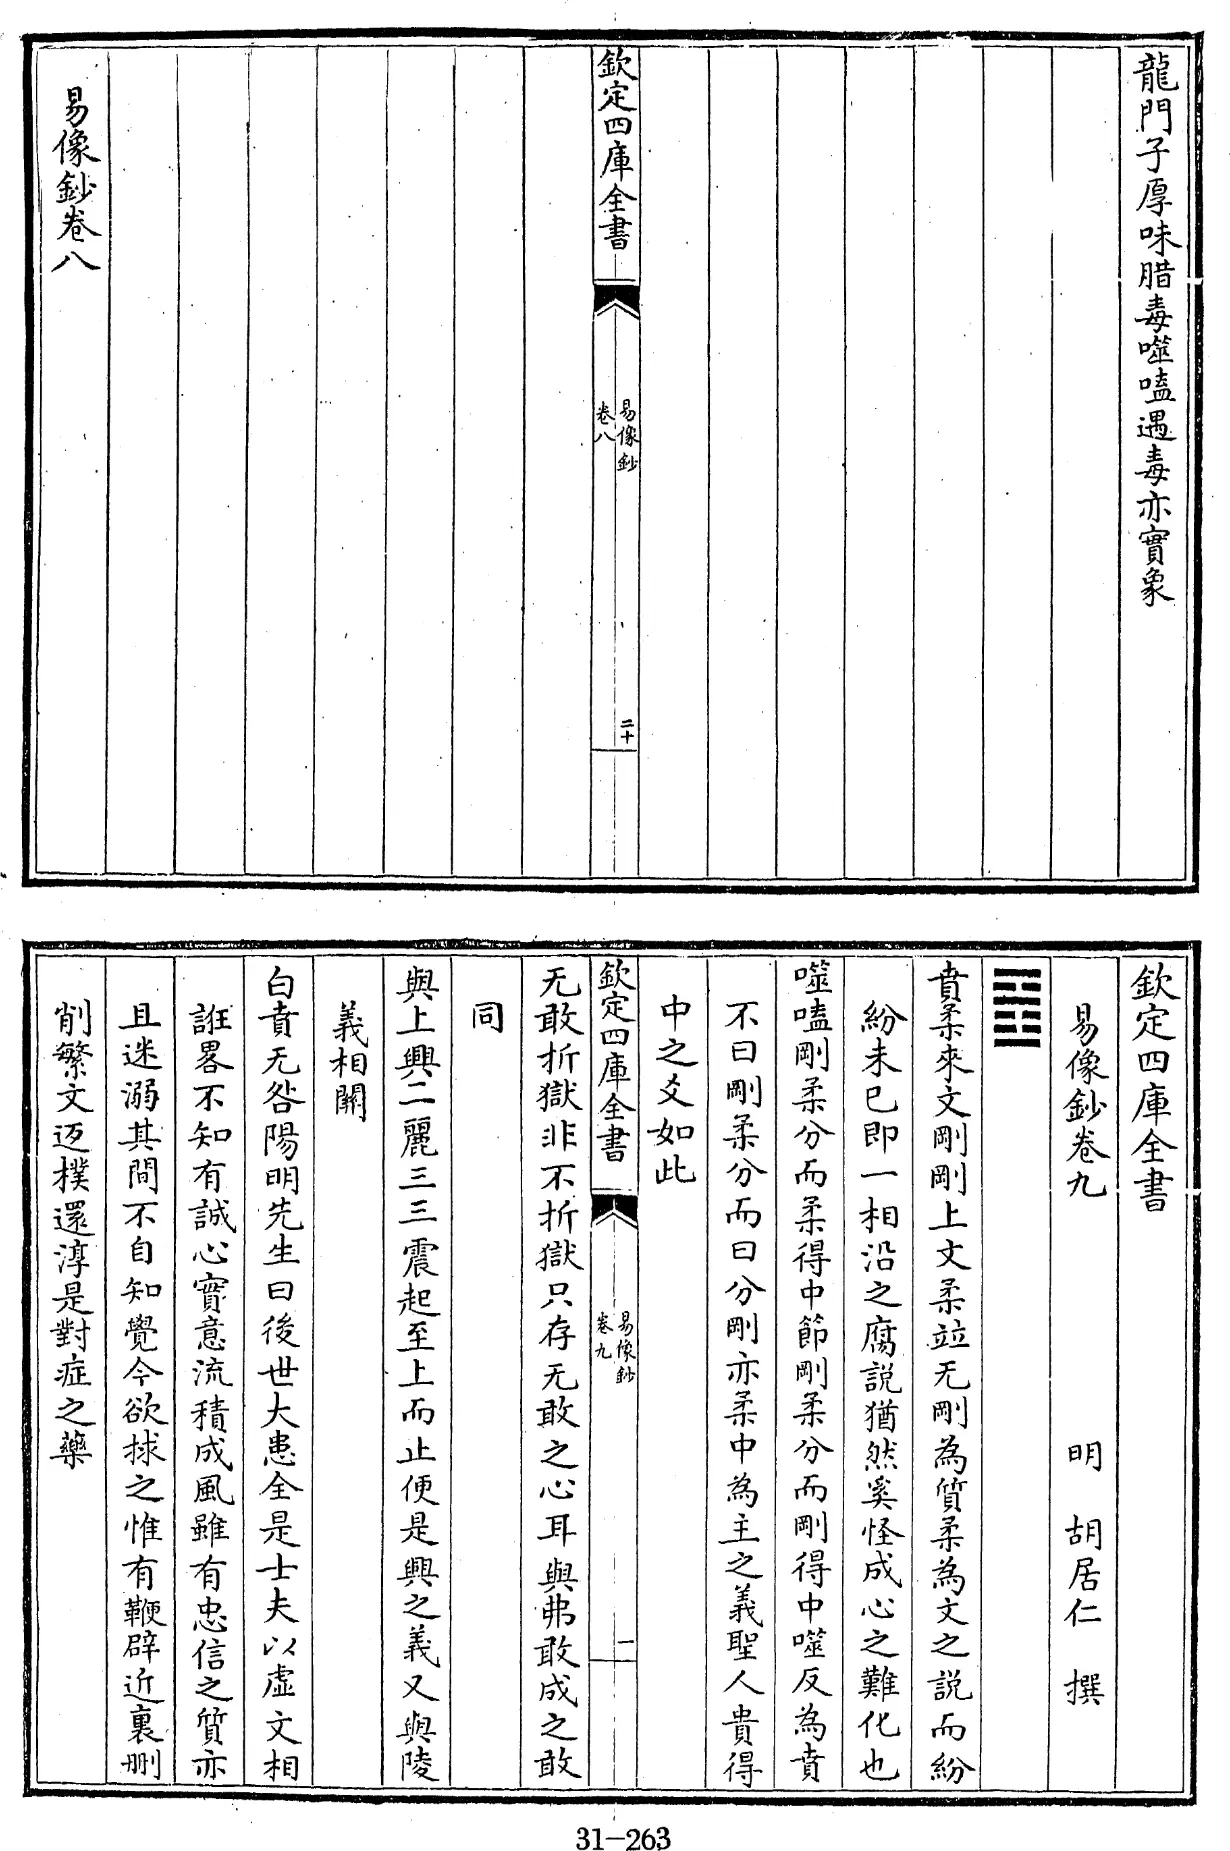 龍門子厚味腊毒噬嗑遇毒亦實象
欽定四庫全書
易像鈔
卷八
二十
易像鈔卷八
欽定四庫全書
易像鈔卷九
明 胡居仁 撰
䷕
賁柔來文剛剛上文柔竝无剛為質柔為文之說而紛
紛未已即一相沿之腐說猶然奚怪成心之難化也
噬嗑剛柔分而柔得中節剛柔分而剛得中噬反為賁
不曰剛柔分而曰分剛亦柔中為主之義聖人貴得
中之爻如此
欽定四庫全書
易像鈔
卷九
一
无敢折獄非不折獄只存无敢之心耳與弗敢成之敢
同
與上興二麗三三震起至上而止便是興之義又與陵
義相關
白賁无咎陽明先生曰後世大患全是士夫以虛文相
誑畧不知有誠心實意流積成風雖有忠信之質亦
且迷溺其間不自知覺今欲捄之惟有鞭辟近裏删
削繁文迈樸還淳是對症之藥
31-263